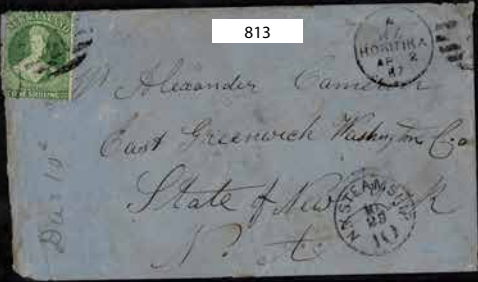 813
A
NZ
HOKITIKA
AP 2
67
Alexander Cameron
East Greenwich Washington Co
State of New York
N.Y. STEAMSHIP
MY
28
10